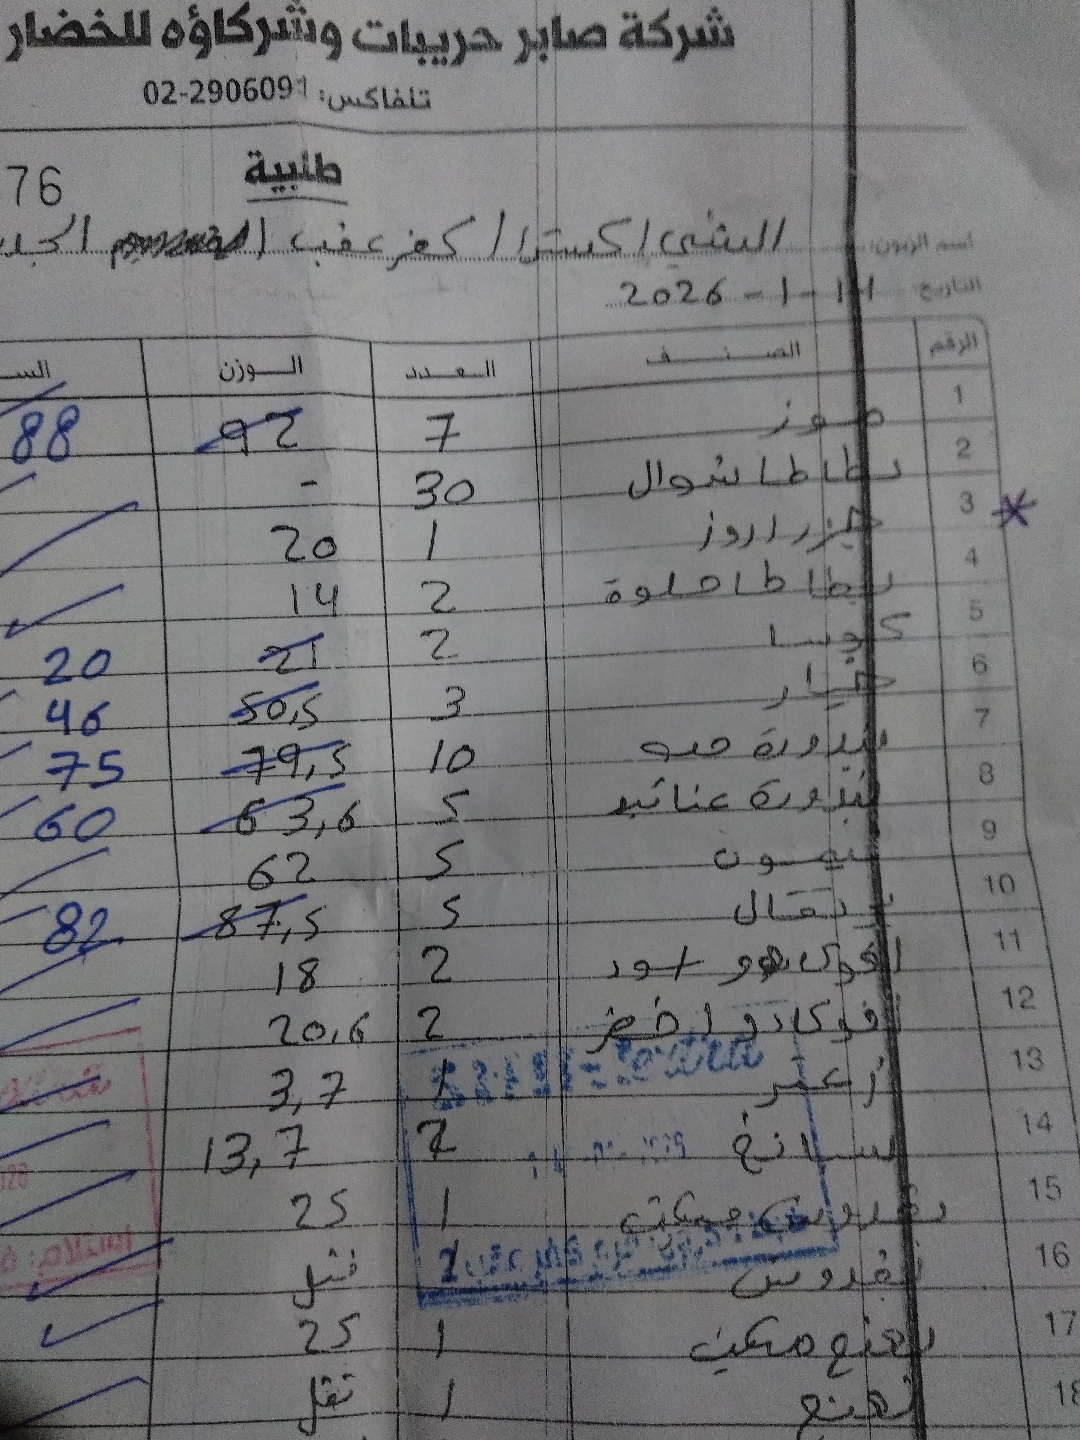 شركة صابر حريبات وشركاؤه للخضار
تلفاكس: 02-2906091
طلبية
76
اسم الزبون: الشني اكسترا / كفر عقب الجد
التاريخ: 14-1-2026
الرقم الصنف العدد الوزن الس
1 موز 7 92 88
2 بطاطا شوال 30 -
3 جزر اروز 1 20
4 بطاطا حلوة 2 14
5 كوسا 2 21 20
6 خيار 3 50,5 46
7 بندورة حبه 10 79,5 75
8 بندورة عناقيد 5 63,6 60
9 ليمون 5 62
10 برتقال 5 87,5 82
11 افوكادو اسود 2 18
12 افوكادو اخضر 2 20,6
13 زعتر 1 3,7
14 سبانخ 2 13,7
15 بقدونس 1 25
16 بقدونس 2
17 نعنع 1 25
18 نعنع 1
استلام: